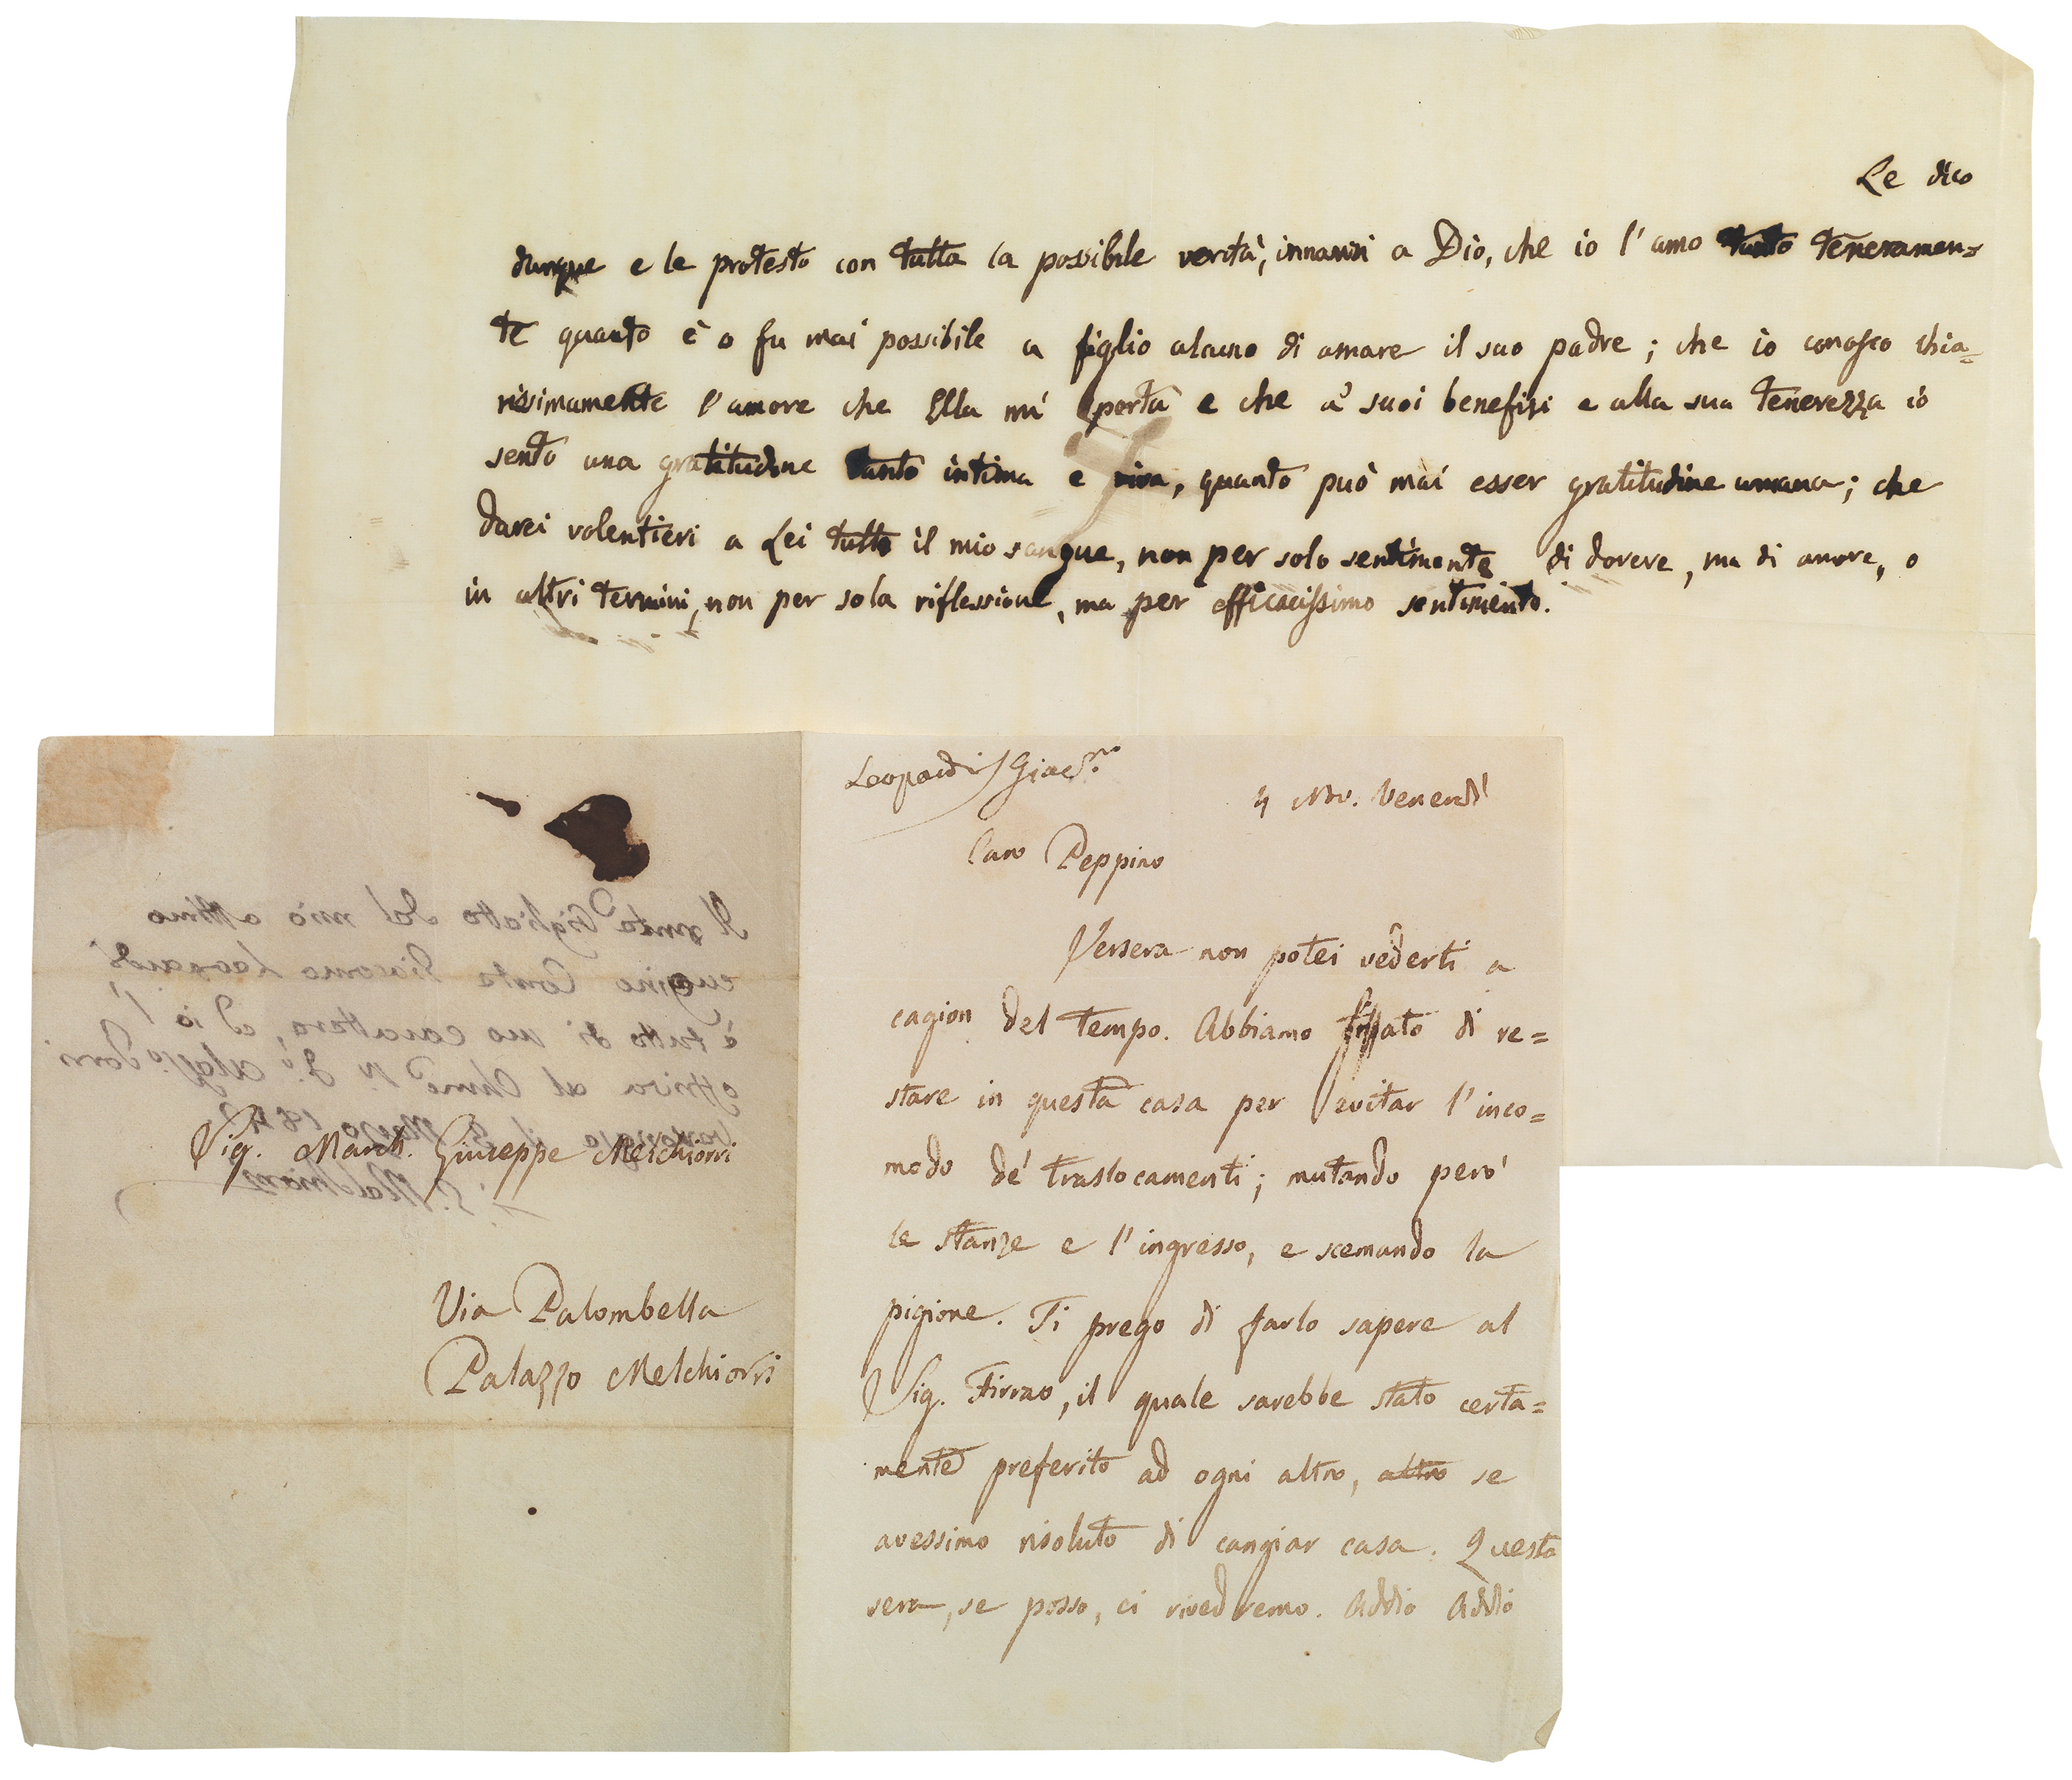 Le dico
dunque e le protesto con tutta la possibile verità, innanzi a Dio, che io l'amo tanto teneramen=
te quanto è o fu mai possibile a figlio alcuno di amare il suo padre; che io conosco chia=
rissimamente l'amore che Ella mi porta e che a' suoi benefizi e alla sua tenerezza io
sento una gratitudine tanto intima e viva, quanto può mai esser gratitudine umana; che
darei volentieri a Lei tutto il mio sangue, non per solo sentimento di dovere, ma di amore, o
in altri termini, non per sola riflessione, ma per efficacissimo sentimento.
Il bigliotto del mio ottimo
cugino Conte Giacomo Leopardi
è tutto di suo carattere, ed io l'
offriva al
Sig. March. Giuseppe Melchiorri
Via Palombella
Palazzo Melchiorri
Leopardi Giac.mo
4 Nov. Venerdì
Caro Peppino
Jersera non potei vederti a
cagion del tempo. Abbiamo fissato di re=
stare in questa casa per evitar l'inco=
modo de' traslocamenti; mutando però
le stanze e l'ingresso, e scemando la
pigione. Ti prego di farlo sapere al
Sig. Firrao, il quale sarebbe stato certa=
mente preferito ad ogni altro, altro se
avessimo risoluto di cangiar casa. Questa
sera, se posso, ci rivedremo. Addio Addio